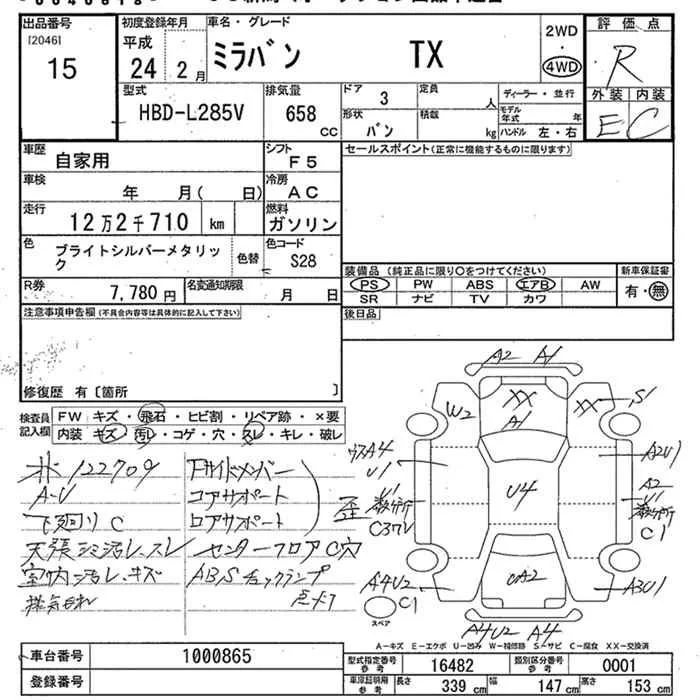 出品番号
[2046]
15
初度登録年月
平成
24 2月
車名・グレード
ミラバン TX
2WD
・
4WD
評価点
R
外装 内装
E C
型式
HBD-L285V
排気量
658
cc
ドア 3
形状 バン
定員 人
積載 kg
ディーラー・並行
モデル年式 年
ハンドル 左・右
車歴 自家用
シフト F5
車検 年 月( 日)
冷房 AC
走行 12万2千710 km
燃料 ガソリン
色 ブライトシルバーメタリック
色替
色コード S28
R券 7,780円
名変通知期限 月 日
セールスポイント(正常に機能するものに限ります)
装備品 (純正品に限り○をつけてください)
PS PW ABS エアB AW
SR ナビ TV カワ
新車保証書
有・無
後日品
注意事項申告欄(不具合内容等は具体的に記入して下さい)
修復歴 有〔箇所 〕
検査員記入欄
FW キズ・飛石・ヒビ割・リペア跡・×要
内装 キズ・汚レ・コゲ・穴・スレ・キレ・破レ
122709
A-U
下廻りC
天張シミ汚レ、スレ
室内汚レ、キズ
Fサイドメンバー
コアサポート
ロアサポート
歪
センターフロアC穴
ABSチェックランプ
点灯
A2 A1
W2
XX
A1
XX
S1
A4
U1
U1
C3
U4
A2U1
A2
U1
C1
A4U2
C1
A2
A3U1
A4U2 A4
スペア
A-キズ E-エクボ U-凹み W-補修跡 S-サビ C-腐食 XX-交換済
車台番号 1000865
登録番号
型式指定番号参考 16482
類別区分番号参考 0001
車庫証明用参考
長さ 339 cm
幅 147 cm
高さ 153 cm